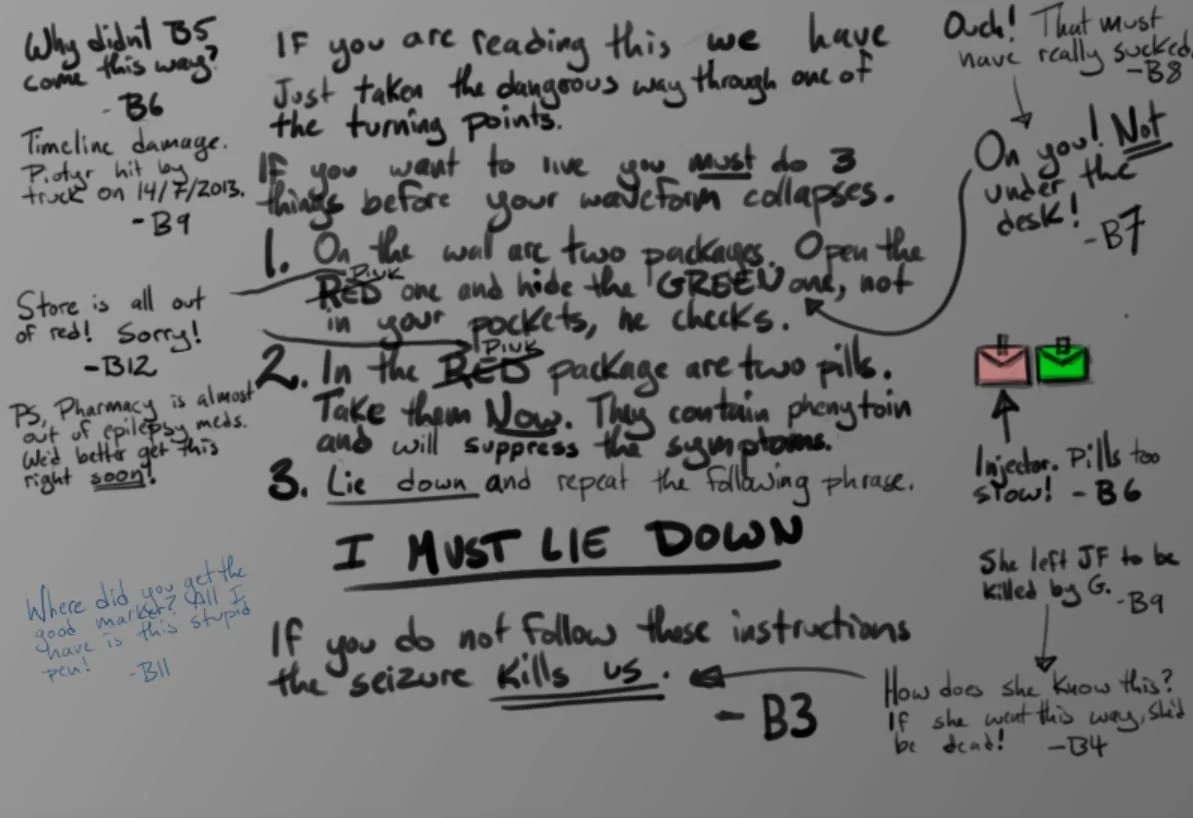 Why didn't B5
come this way?
- B6
Timeline damage.
Piotyr hit by
truck on 14/7/2013.
- B9
Store is all out
of red! Sorry!
- B12
PS, Pharmacy is almost
out of epilepsy meds.
We'd better get this
right soon!
Where did you get the
good market? All I
have is this stupid
pen!
- B11
IF you are reading this we have
Just taken the dangerous way through one of
the turning points.
If you want to live you must do 3
things before your waveform collapses.
1. On the wal are two packages. Open the
PINK
RED one and hide the GREEN one, not
in your pockets, he checks.
PINK
2. In the RED package are two pills.
Take them Now. They contain phenytoin
and will suppress the symptoms.
3. Lie down and repeat the following phrase.
I MUST LIE DOWN
If you do not follow these instructions
the seizure kills us.
- B3
Ouch! That must
have really sucked.
- B8
On you! Not
under the
desk!
- B7
Injector. Pills too
slow! - B6
She left JF to be
killed by G. - B9
How does she know this?
If she went this way, she'd
be dead! - B4